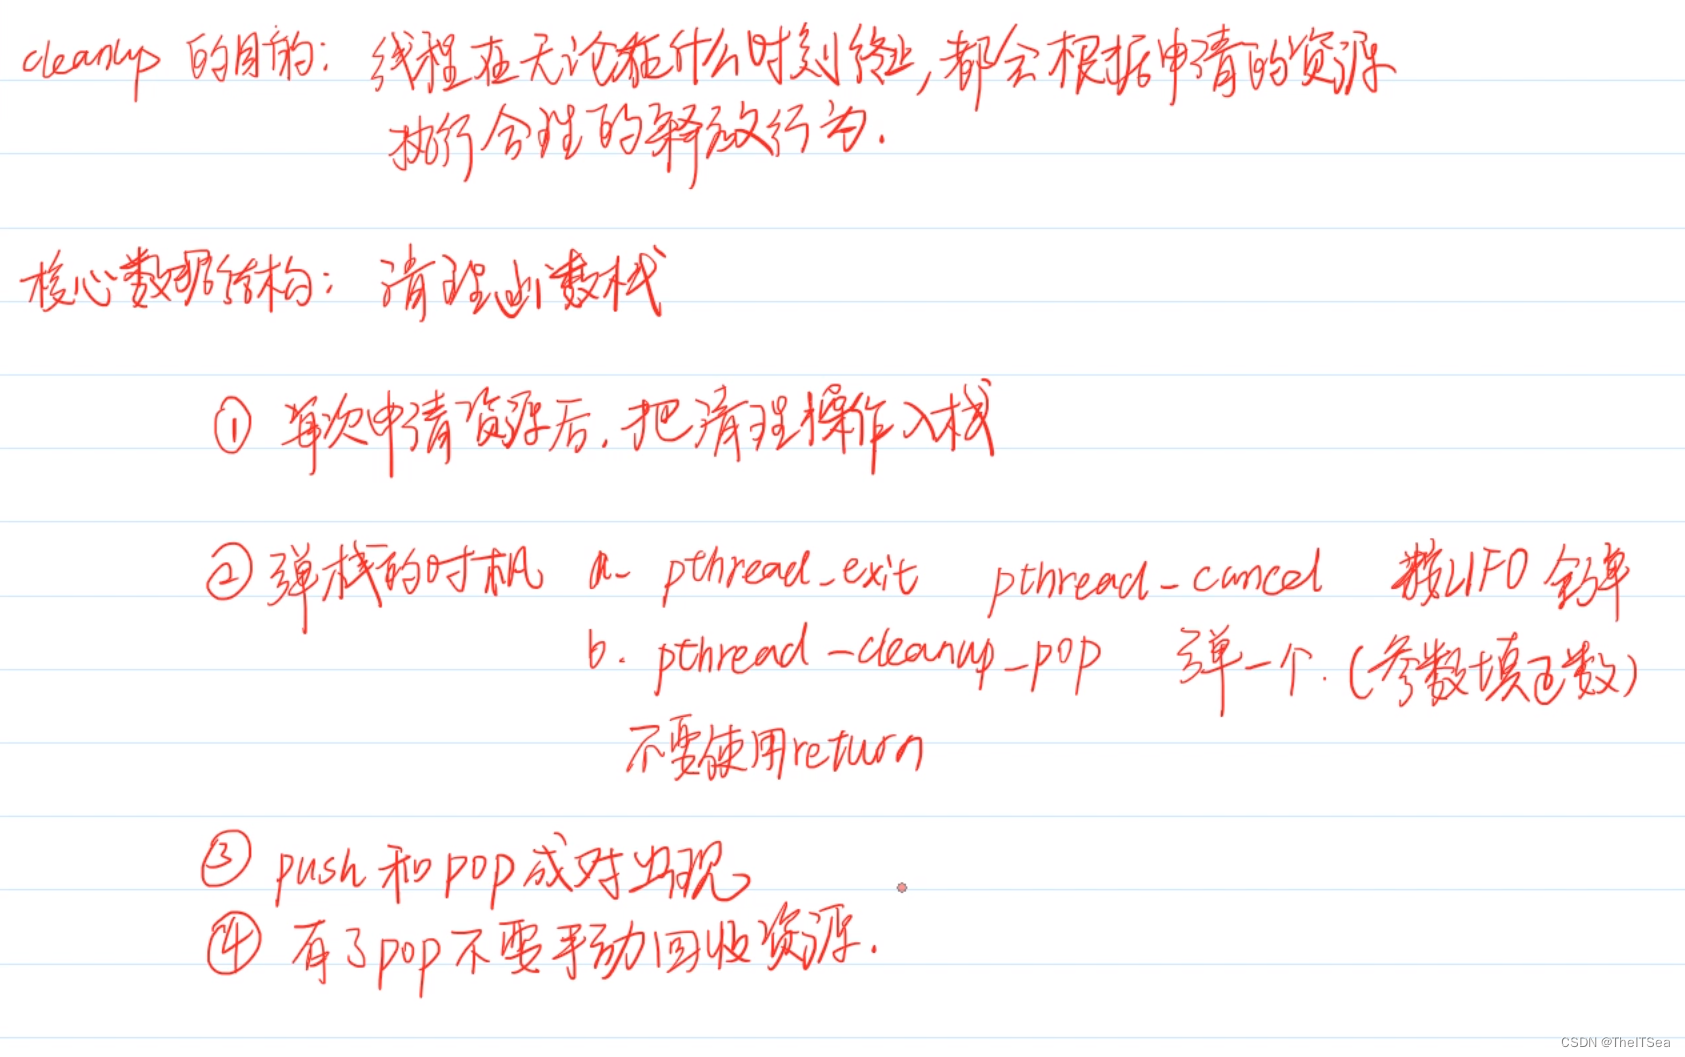 cleanup 的目的: 线程在无论在什么时刻终止,都会根据申请的资源
执行合理的释放行为.
核心数据结构: 清理函数栈
① 每次申请资源后.把清理操作入栈
② 弹栈的时机 a- pthread_exit pthread-cancel 按LIFO 全弹
b. pthread-cleanup_pop 弹一个.(参数填正数)
不要使用return
③ push和pop成对出现
④ 有了pop不要手动回收资源.
CSDN @TheITSea